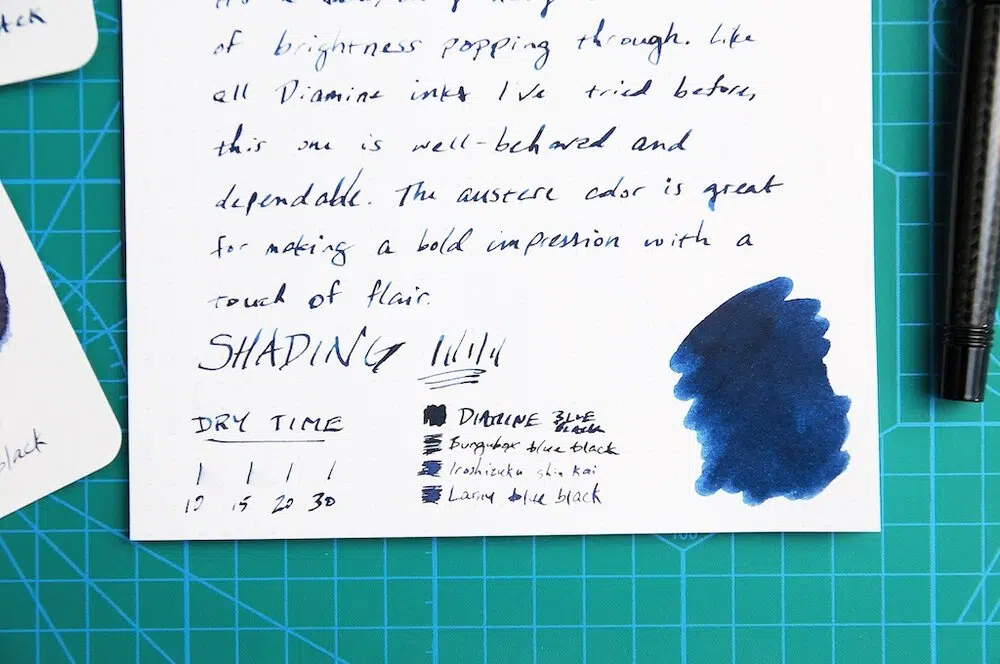 of brightness popping through. Like
all Diamine inks I've tried before,
this one is well-behaved and
dependable. The austere color is great
for making a bold impression with a
touch of flair.
SHADING
DRY TIME
10 15 20 30
DIAMINE BLUE BLACK
Bungubox blue black
Iroshizuku shin kai
Lamy blue black
black